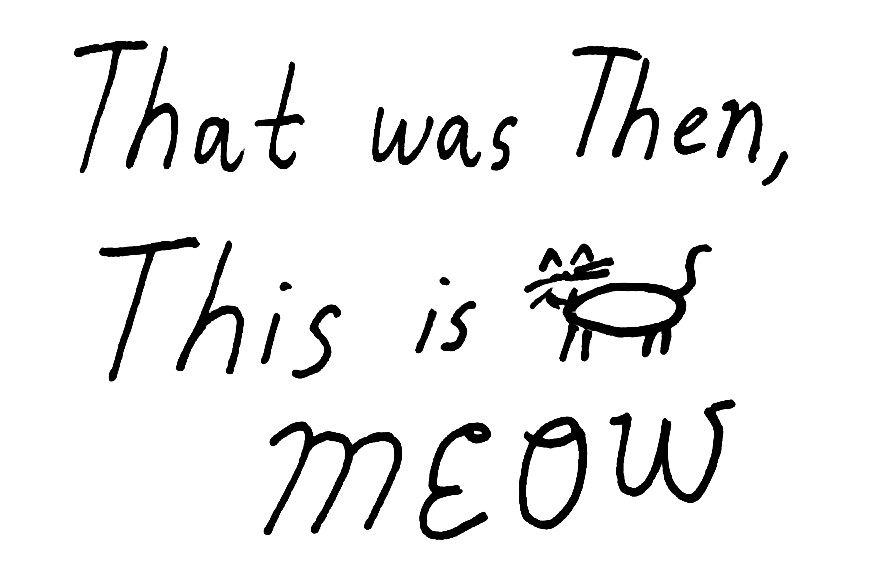 That was Then,
This is
MEOW